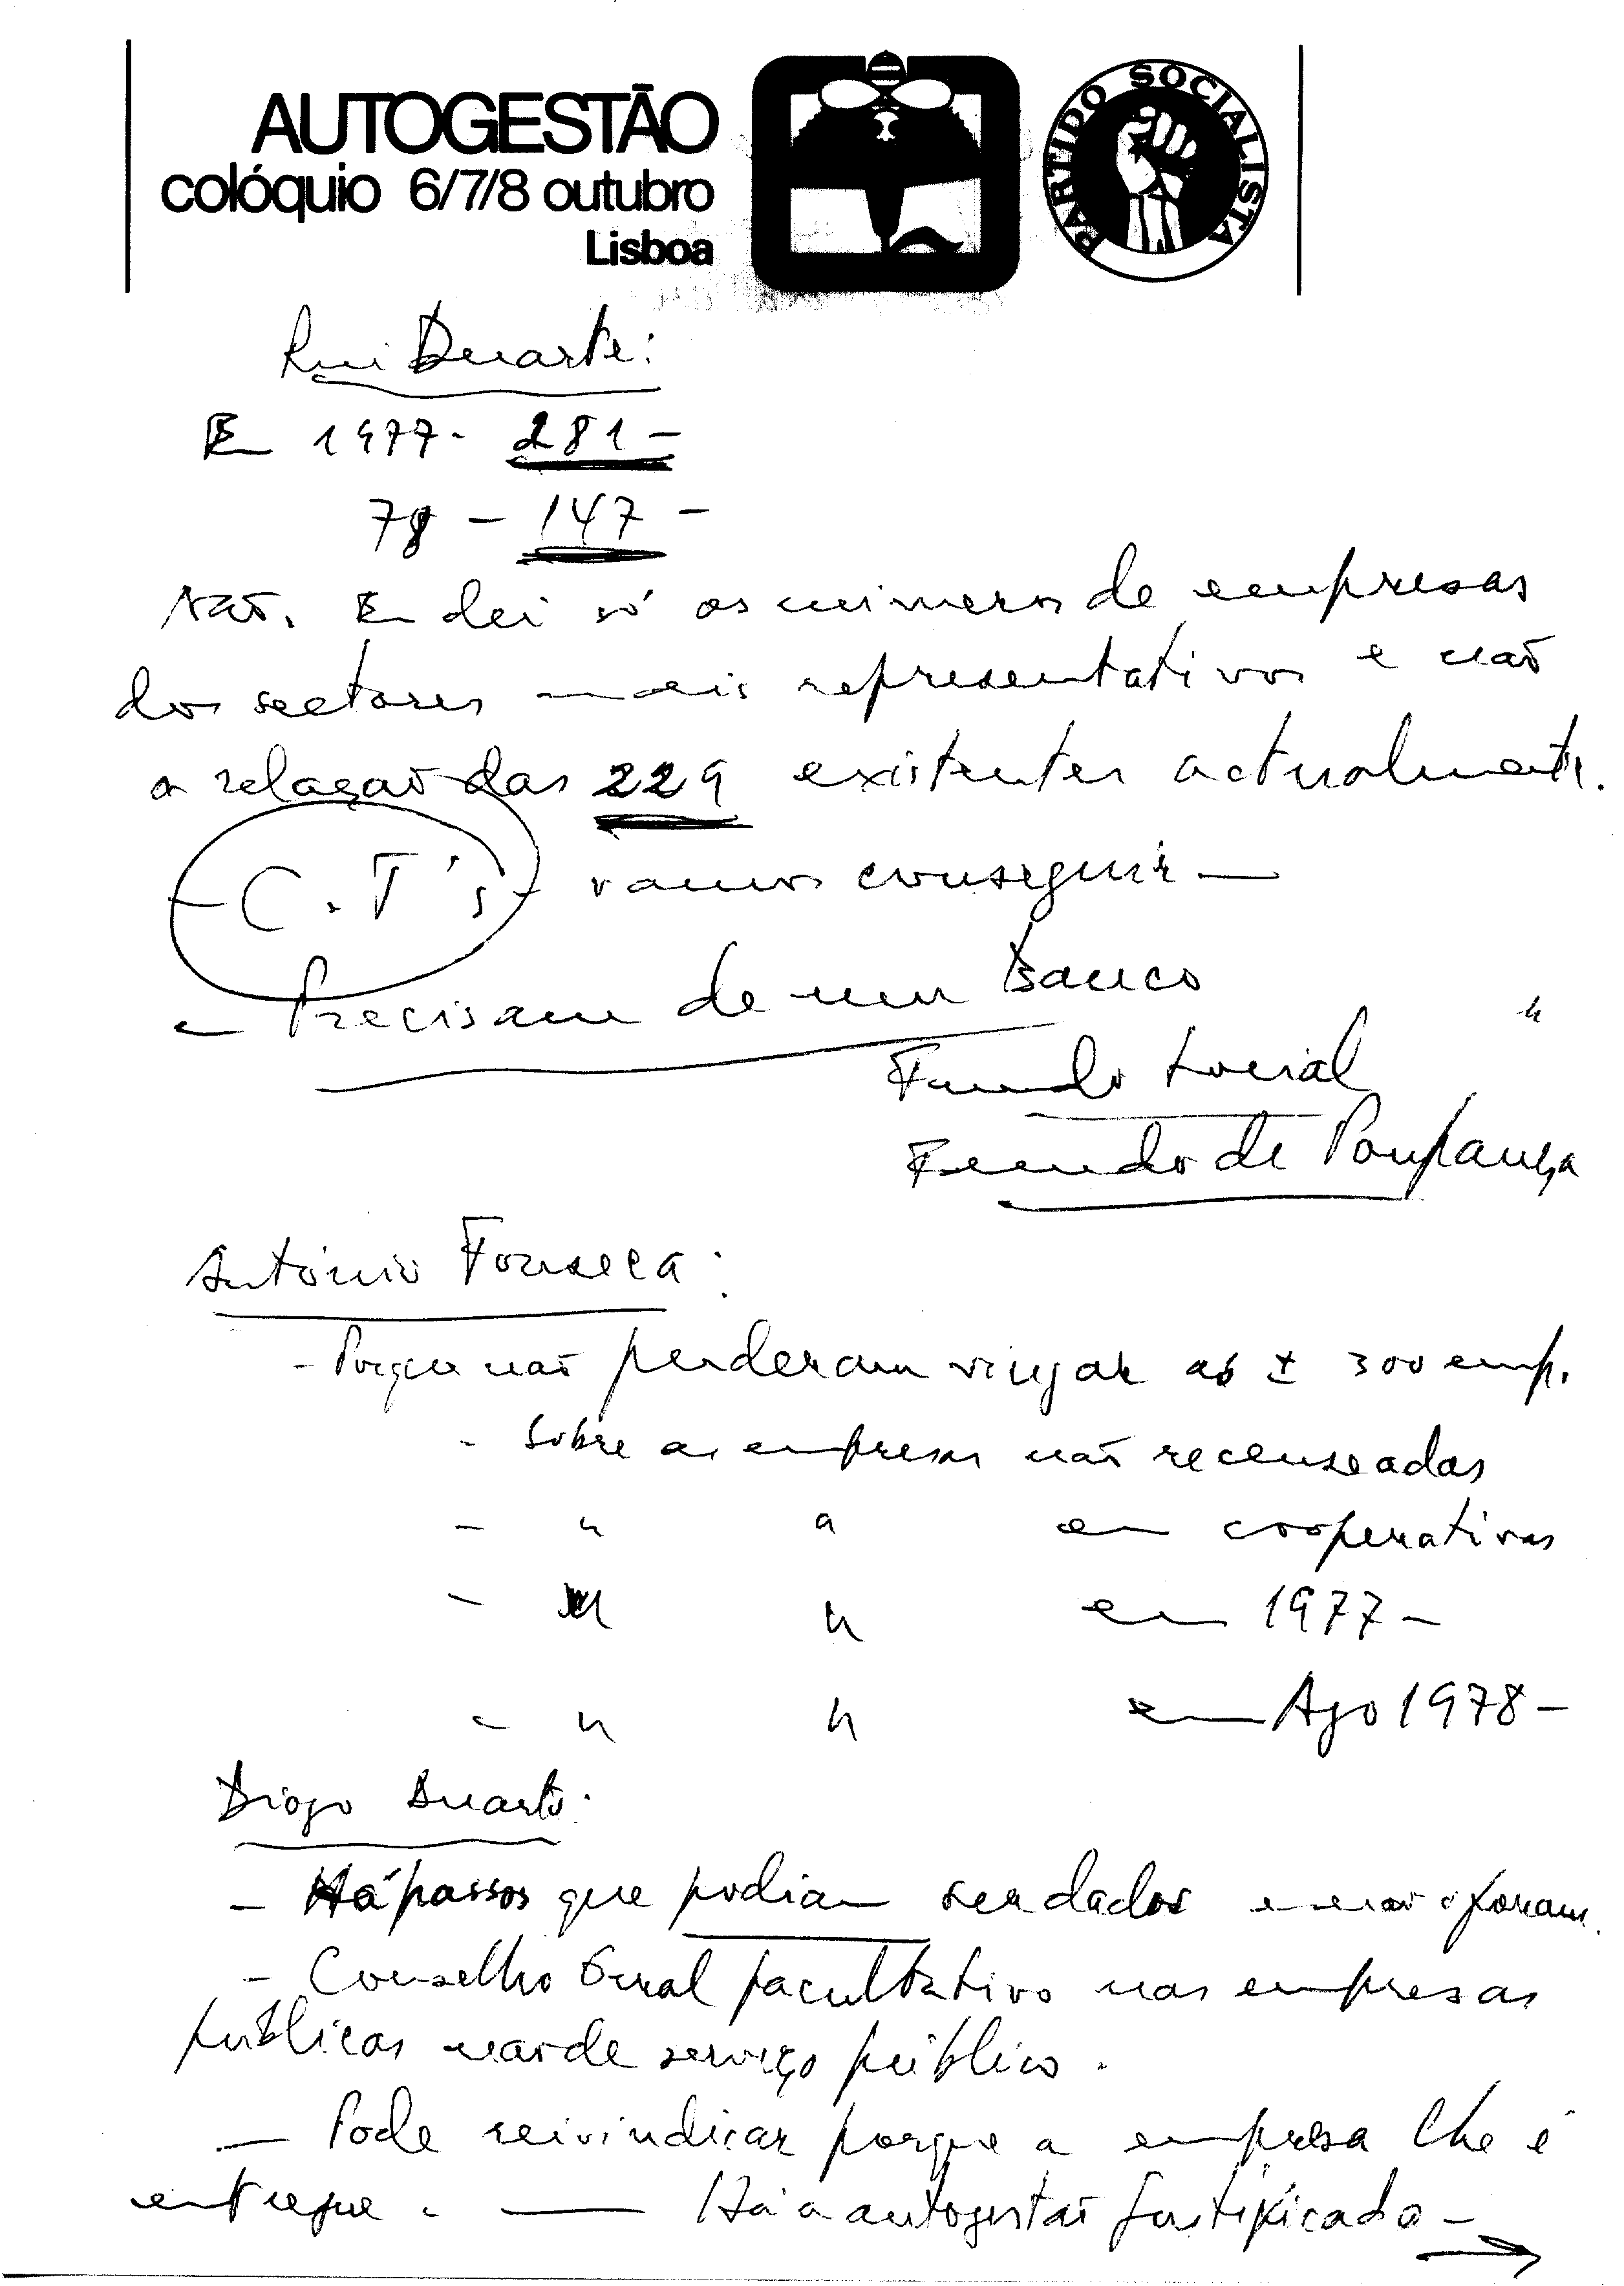 AUTOGESTÃO
colóquio 6/7/8 outubro
Lisboa
PARTIDO SOCIALISTA
Rui Duarte:
Em 1977 - 281 -
78 - 147 -
Não. Eu dei só os números de empresas
dos sectores mais representativos e não
a relação das 229 existentes actualmente.
- C.T's - vamos conseguir -
- Precisam de um Banco
Fundo Social
Fundo de Poupança
António Fonseca:
- Porque não puderam vingar as ± 300 emp.
- Sobre as empresas não recenseadas
- " " em cooperativas
- " " em 1977 -
- " " em Ago 1978 -
Diogo Duarte:
- Há passos que podiam ser dados e não o foram.
- Conselho Geral facultativo nas empresas
públicas não de serviço público.
- Pode reivindicar porque a empresa lhe é
entregue. - Há a autogestão justificada -